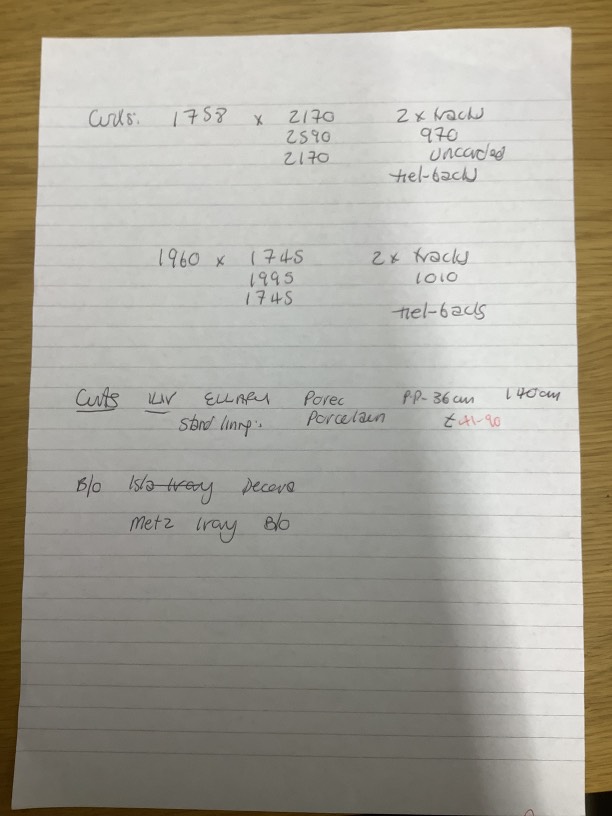 Curts: 1758 x 2170 2 x tracks
2590 970
2170 uncorded
tiel-backs
1960 x 1745 2 x tracks
1995 1010
1745
tiel-backs
Curts Porec PP- 36cm 140cm
Stand lining: Porcelain £41-90
B/o Decora
Metz Iray B/o